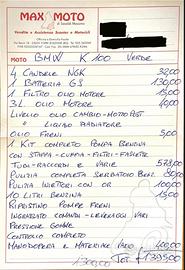 MAX MOTO
Vendita e Assistenza Scooter e Motocicli
MOTO BMW K 100 VERDE
4 CANDELE NGK 32,00
1 BATTERIA GS 130,00
1 FILTRO OLIO MOTORE 15,00
3L OLIO MOTORE 40,00
LIVELLO OLIO CAMBIO-MOTO POST
E LIQUIDO RADIATORE
OLIO FRENI 5,00
1 KIT COMPLETO POMPA BENZINA
CON STAFFA-CUFFIA-FILTRI-FASCETTE
TUBI-RACCORDI E VARIE
PULIZIA COMPLETA SERBATOIO BENZ
PULIZIA INIETTORI CON OR 100,00
10 LITRI BENZINA 15,00
RIPRISTINO POMPE FRENI
INGRASSATO COMANDI-LEVERAGGI VARI
PRESSIONE GOMME
CONTROLLO COMPLETO
MANODOPERA E MATERIALE VARIO 400,00
TOT €1395,00
1300,00